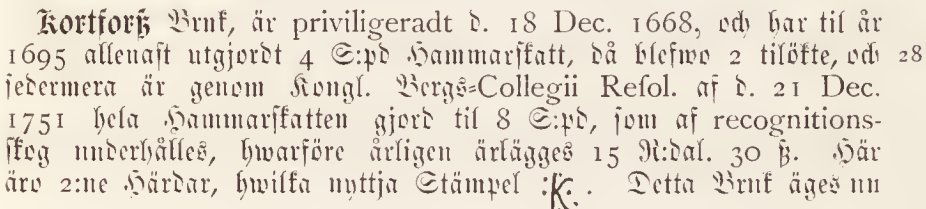 Kortforß Bruk, är priviligeradt d. 18 Dec. 1668, och har til år
1695 allenast utgjordt 4 S:pd Hammarskatt, då blefwo 2 tilökte, och 28
sedermera är genom Kongl. Bergs-Collegii Resol. af d. 21 Dec.
1751 hela Hammarskatten gjord til 8 S:pd, som af recognitions-
skog underhålles, hwarföre årligen ärlägges 15 R:dal. 30 ß. Här
äro 2:ne Härdar, hwilka nyttja Stämpel :K: . Detta Bruk äges nu